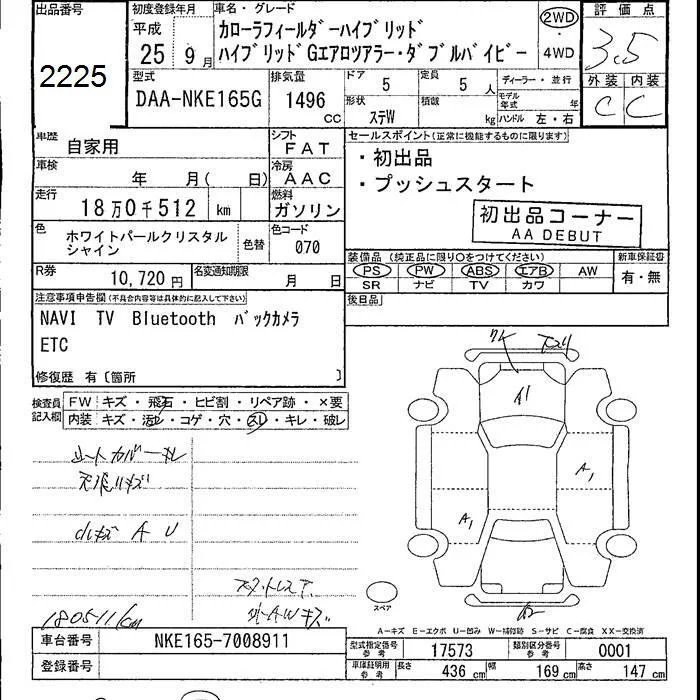 出品番号 初度登録年月 車名・グレード 評価点
2225 平成 25 9月 カローラフィールダーハイブリッド 2WD 3.5
ハイブリッドGエアロツアラー・ダブルバイビー 4WD
型式 排気量 ドア 定員 ディーラー・並行 外装 内装
DAA-NKE165G 1496 cc 5 5人 モデル年式 年 C C
形状 ステW 積載 kg ハンドル 左・右
車歴 自家用 シフト FAT セールスポイント(正常に機能するものに限ります)
車検 年 月( 日) 冷房 AAC ・初出品
走行 18万0千512 km 燃料 ガソリン ・プッシュスタート
初出品コーナー
AA DEBUT
色 ホワイトパールクリスタルシャイン 色替 色コード 070
装備品(純正品に限り○をつけてください) 新車保証書
PS PW ABS エアB AW 有・無
SR ナビ TV カワ
R券 10,720円 名変通知期限 月 日
後日品
注意事項申告欄(不具合内容等は具体的に記入して下さい)
NAVI TV Bluetooth バックカメラ
ETC
修復歴 有〔箇所 〕
検査員記入欄 FW キズ・飛石・ヒビ割・リペア跡・×要
内装 キズ・汚レ・コゲ・穴・スレ・キレ・破レ
A1
A1
A1
小キズ A U
180511km
スペア
A-キズ E-エクボ U-凹み W-補修跡 S-サビ C-腐食 XX-交換済
車台番号 NKE165-7008911
登録番号
型式指定番号 参考 17573 類別区分番号 参考 0001
車庫証明用 参考 長さ 436 cm 幅 169 cm 高さ 147 cm